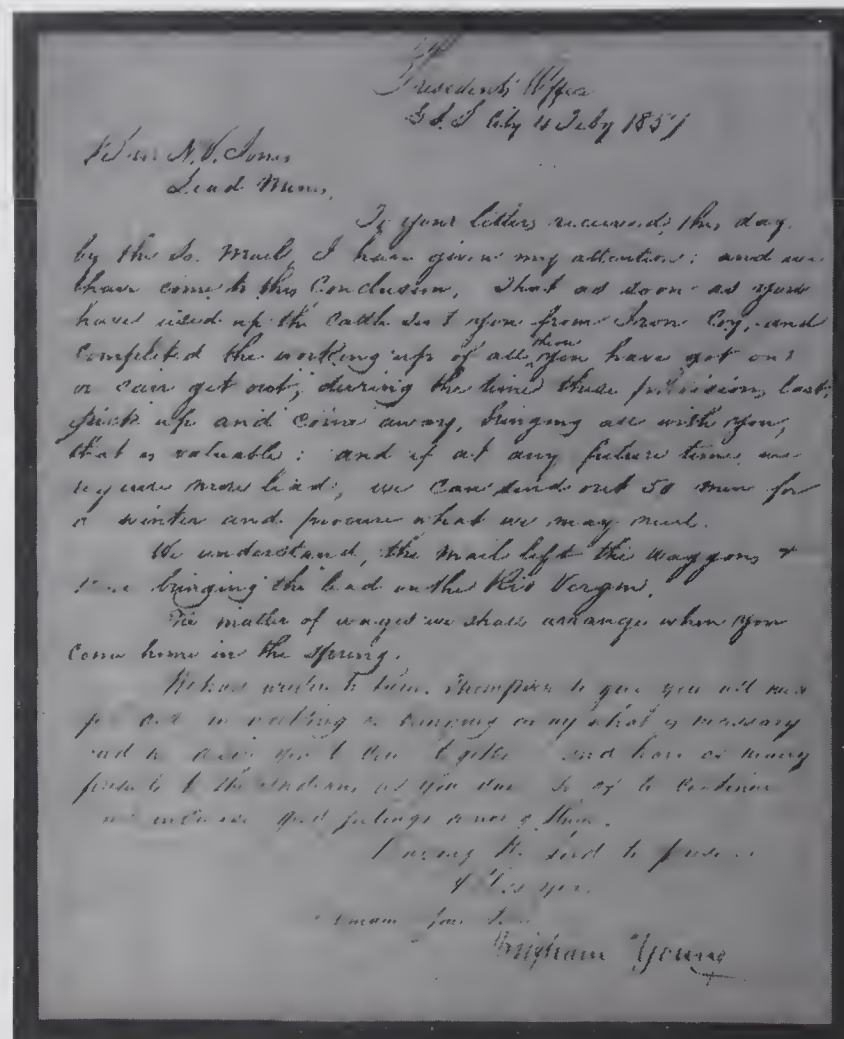 Presidents Office
G. S. L City 4 Feby 1857
N. V. Jones
Lead Mines,
To your letters received, this day
by the So. Mail, I have given my attention; and we
have come to this Conclusion, That as soon as you
have used up the Cash sent you from Iron Coy, and
completed the working up of all, you have got out
or can get out, during the time these provisions last,
pick up and come away, bringing all with you,
that is valuable: and if at any future time we
require more lead, we can send out 50 men for
a winter and procure what we may need.
We understand, the mail left the waggons &
bringing the lead on the Rio Vergin.
The matter of wages we shall arrange when you
come home in the spring.
to give you all
in and carrying away what is necessary
and have as many
presents to the Indians as you can so as to continue
and good feelings among them.
Praying the Lord to preserve
& bless you
remain
Brigham Young